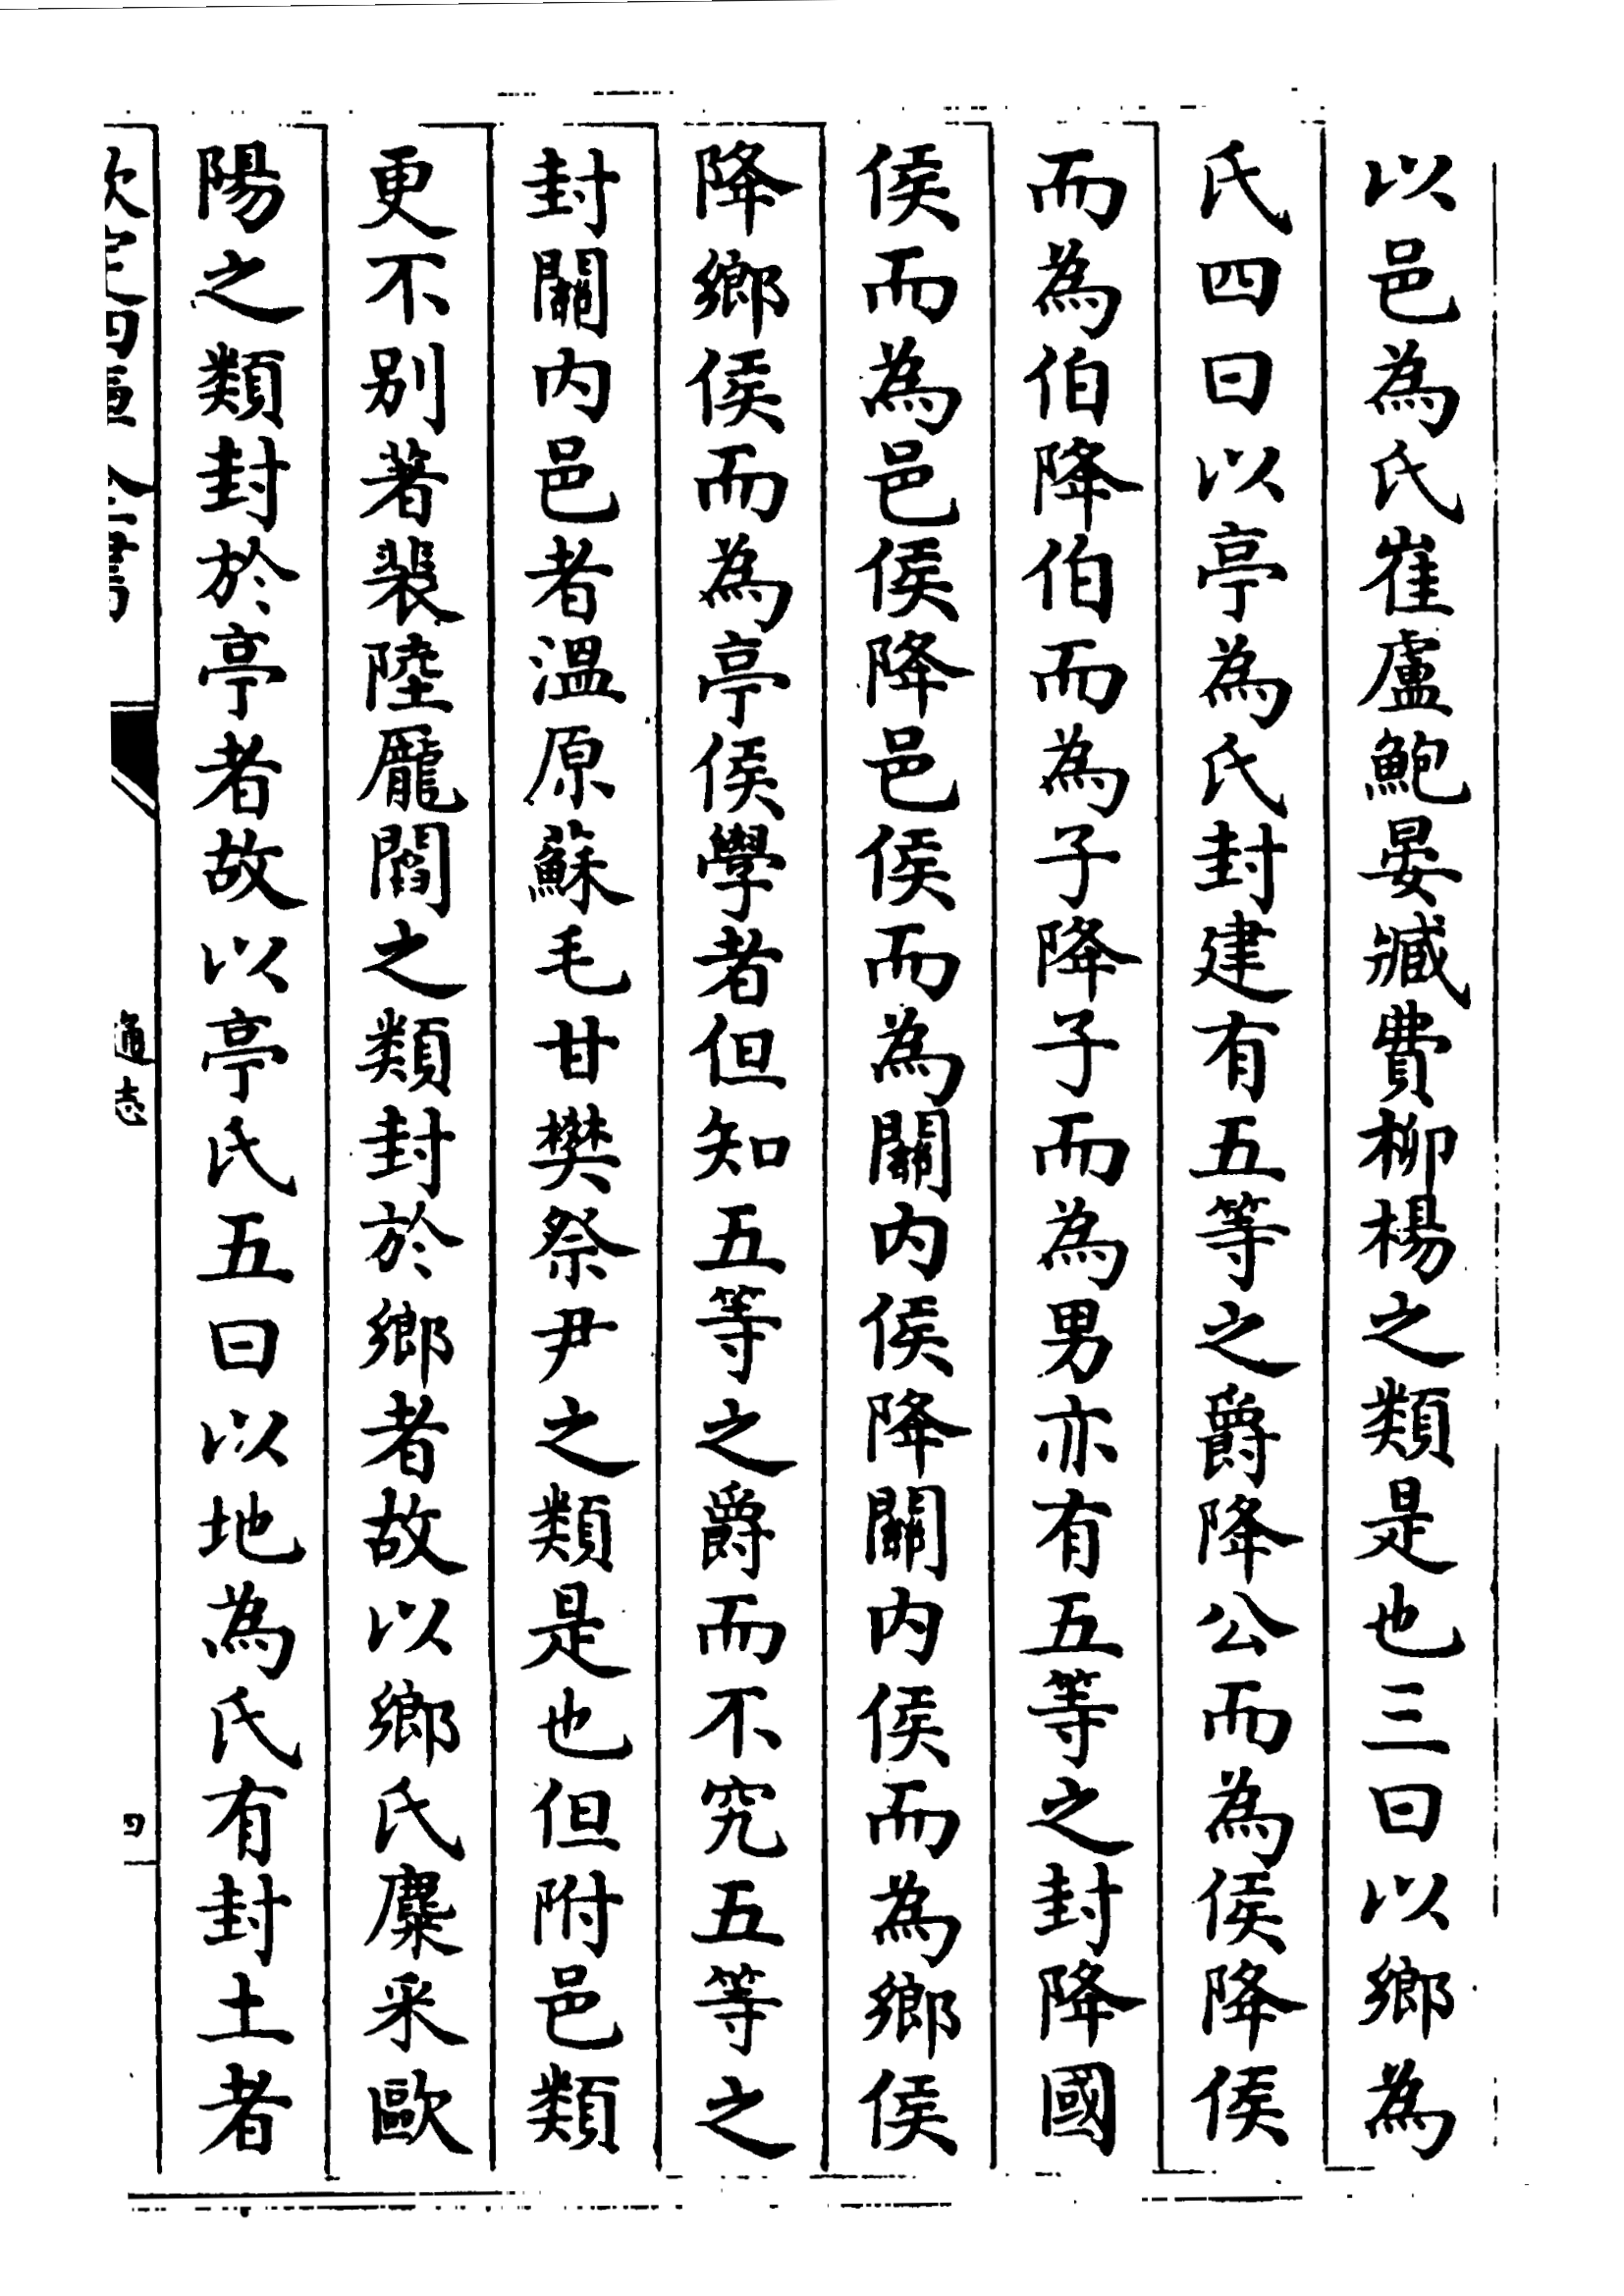 以邑為氏崔盧鮑晏臧費柳楊之類是也三曰以鄉為
氏四曰以亭為氏封建有五等之爵降公而為侯降侯
而為伯降伯而為子降子而為男亦有五等之封降國
侯而為邑侯降邑侯而為關内侯降關内侯而為鄉侯
降鄉侯而為亭侯學者但知五等之爵而不究五等之
封關内邑者溫原蘇毛甘樊祭尹之類是也但附邑類
更不别著裴陸龎閻之類封於鄉者故以鄉氏麋采歐
陽之類封於亭者故以亭氏五曰以地為氏有封土者
欽定四庫全書
通志
四